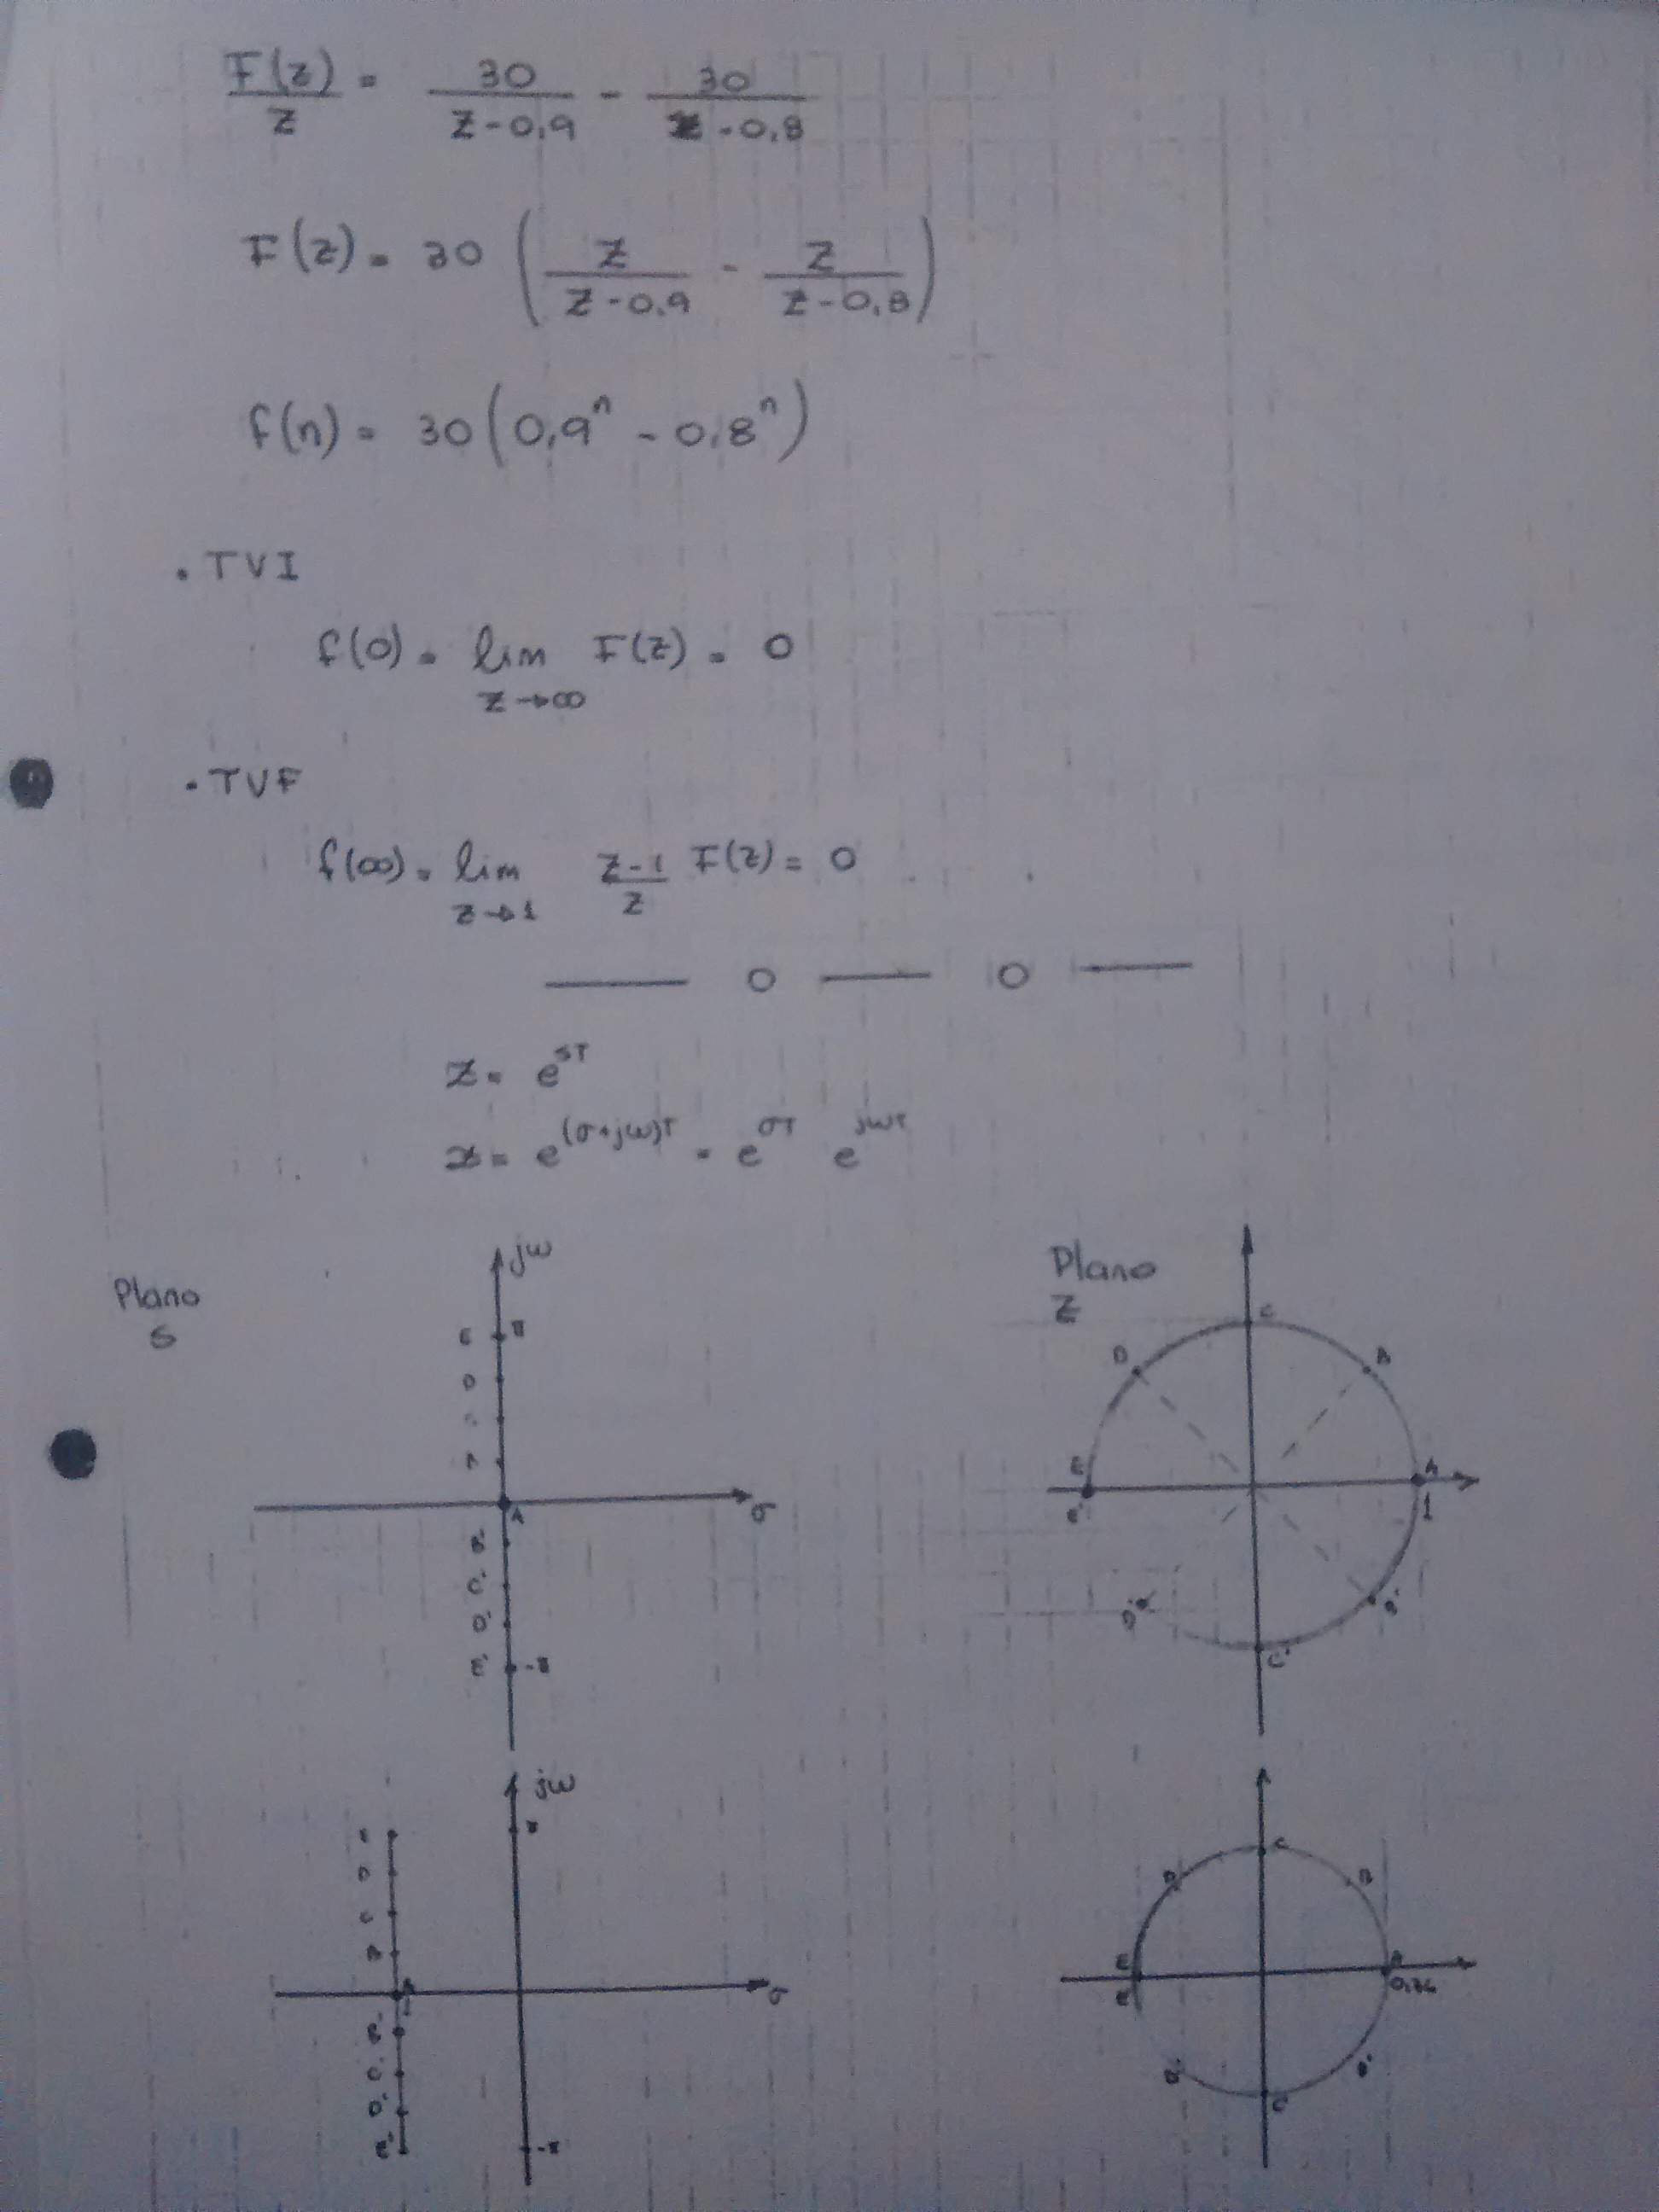 F(z)/z = 30/(z-0,9) - 30/(z-0,8)
F(z) = 30 ( z/(z-0,9) - z/(z-0,8) )
f(n) = 30 ( 0,9^n - 0,8^n )
. TVI
f(0) = lim z→∞ F(z) = 0
. TVF
f(∞) = lim z→1 (z-1)/z F(z) = 0
—— 0 —— 0 ——
z = e^(sT)
z = e^((σ+jω)T) = e^(σT) e^(jωT)
Plano
S
jω
E π
D
A
σ
B'
C'
D'
E' -π
Plano
Z
C
D B
E A
E' 1
D' B'
C'
jω
π
D
C
B
σ
B'
C'
D'
E'
-π
C
D B
E A
E'
D' B'
C'